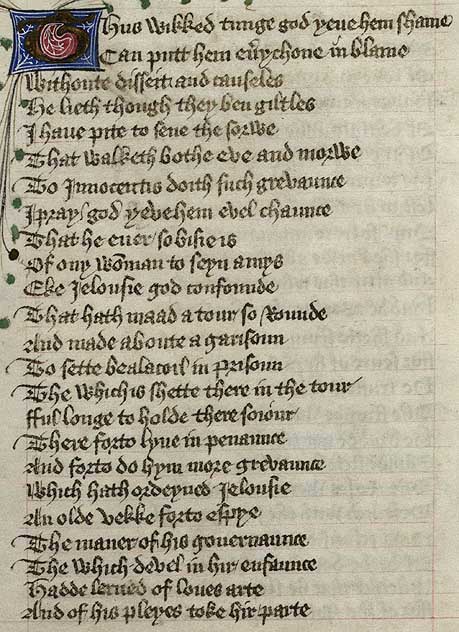 Thus wikked tunge god yeve hem shame
Can putt hem eũychone in blame
Withoute disseit and causeles
He lieth though they ben giltles
I haue pite to sene the sorwe
That walketh bothe eve and morwe
To Innocentis doith such grevaunce
I pray god yeve hem evel chaunce
That he euer so bisie is
Of ony wõman to seyn amys
Eke Jelousie god confounde
That hath maad a tour so Rounde
And made aboute a garisoun
To sette bealacoil in prisoun
The which is shette there in the tour
fful longe to holde there soiour
There forto lyue in penaunce
And forto do hym more grevaunce
Which hath ordeyned Jelousie
An olde vekke forto espye
The maner of his gouernaunce
The which devel in hir enfaunce
Hadde lerned of loues arte
And of his pleyes toke hir parte